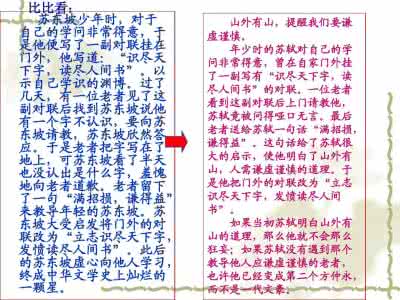 比比看：
苏东坡少年时，对于
自己的学问非常得意，于
是他便写了一副对联挂在
门外，他写道：“识尽天
下字，读尽人间书”。以
示自己学识的渊博。过了
几天，有一位老者见了这
副对联后找到苏东坡说他
有一个字不认识，要向苏
东坡请教，苏东坡欣然答
应。于是老者把字写在了
地上，可苏东坡看了半天
也没认出是什么字，羞愧
地向老者道歉。老者留下
了一句“满招损，谦得益”
来教导年轻的苏东坡。苏
东坡大受启发将门外的对
联改为“立志识尽天下字，
发愤读尽人间书”。此后
的苏东坡虚心向他人学习，
终成中华文学史上灿烂的
一颗星。
山外有山，提醒我们要谦
虚谨慎。
年少时的苏轼对自己的学
问非常得意，曾在自家门外挂
了一副写有“识尽天下字，读
尽人间书”的对联。一位老者
看到这副对联后上门请教他，
苏轼竟被问得哑口无言。最后
老者送给苏轼一句话“满招损，
谦得益”。这句话给了苏轼很
大的启示，使他明白了山外有
山，人需谦虚谨慎的道理。于
是他把门外的对联改为“立志
识尽天下字，发愤读尽人间
书”。
如果当初苏轼明白山外有
山的道理，那么他就不会那么
狂妄；如果苏轼没有遇到那个
教导他人应谦虚谨慎的老者，
也许他已经变成第二个方仲永，
而不是一代文豪。